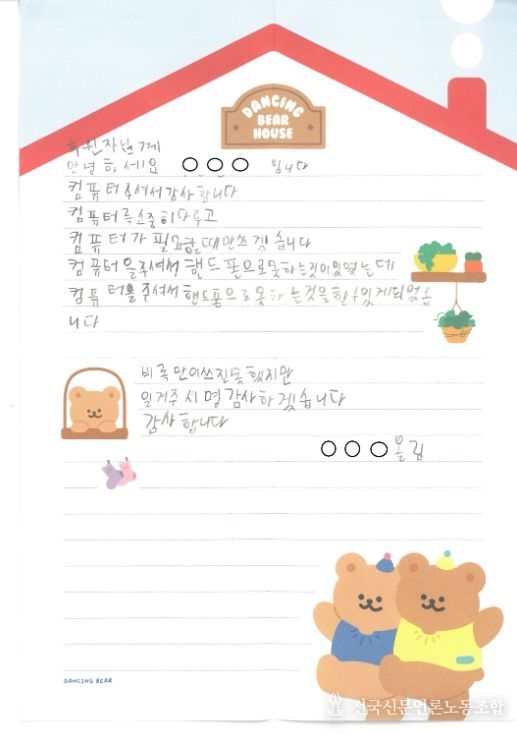 DANCING
BEAR
HOUSE
후원자님께
안녕하세요 ○○○ 입니다
컴퓨터 주셔서 감사합니다
컴퓨터를 소중히 다루고
컴퓨터가 필요할 때만 쓰겟습니다
컴퓨터을 주셔서 핸드폰으로 못하는것이 있었는데
컴퓨터를 주셔서 핸드폰으로 못하는것을 할수있게 되었습
니다
비록 많이 쓰진 못했지만
일거주시명 감사하겠습니다
감사합니다
○○○ 올림
DANCING BEAR
전국신문언론노동조합